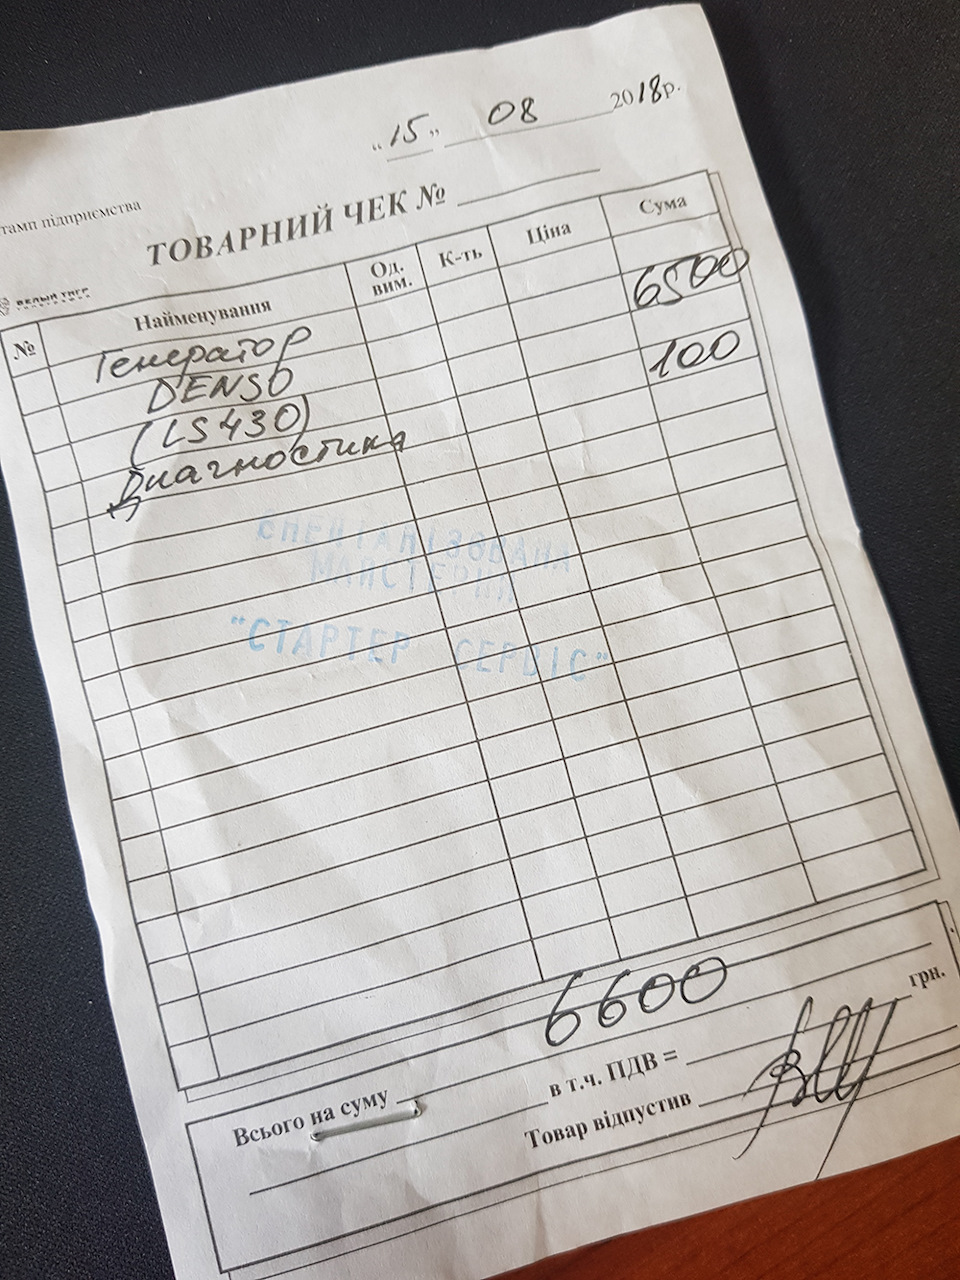 "15" 08 2018р.
тамп підприємства
ТОВАРНИЙ ЧЕК №
БЕЛЫЙ ТИГР
№ Найменування Од. вим. К-ть Ціна Сума
Генератор 6500
DENSO
(LS430) 100
Диагностика
СПЕЦІАЛІЗОВАНА
МАЙСТЕРНЯ
"СТАРТЕР СЕРВІС"
Всього на суму 6600 грн.
в т.ч. ПДВ =
Товар відпустив